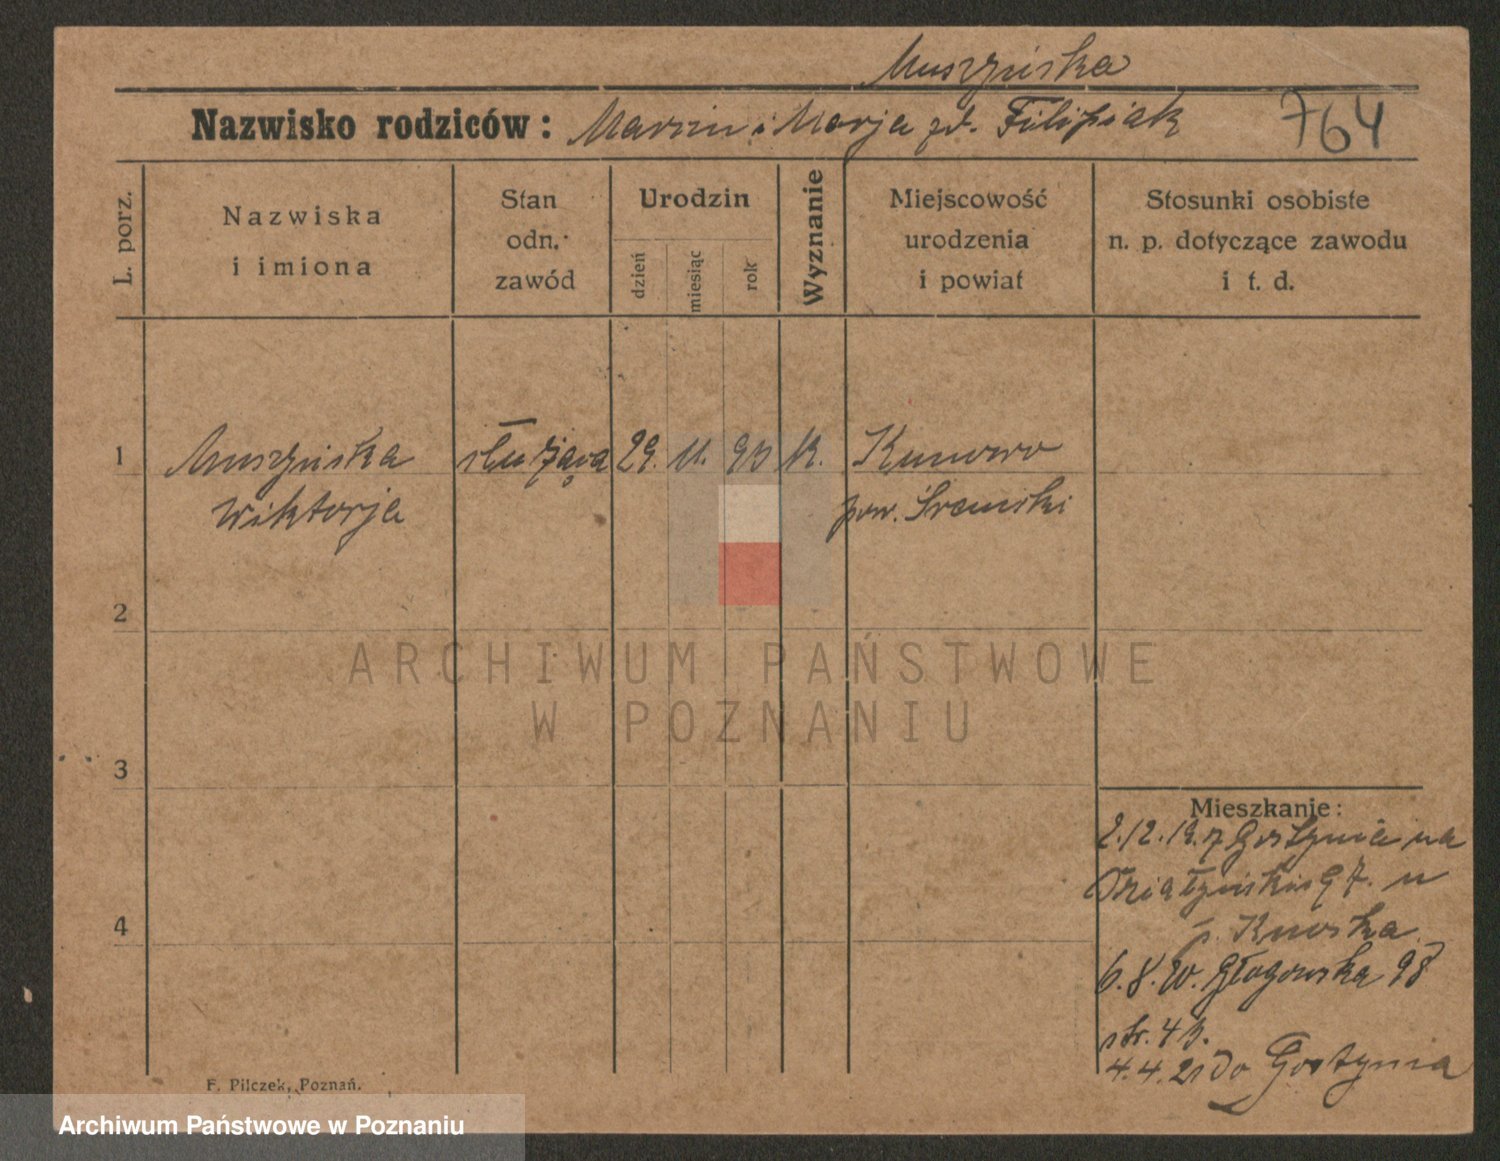 Muszyńska
Nazwisko rodziców: Marcin i Marja zd. Filipiak
764
L. porz.
Nazwiska
i imiona
Stan
odn.
zawód
Urodzin
dzień
miesiąc
rok
Wyznanie
Miejscowość
urodzenia
i powiat
Stosunki osobiste
n. p. dotyczące zawodu
i t. d.
1
Muszyńska
Wiktorja
służąca
29.
11.
93
K.
Kunowo
pow. Śremski
2
ARCHIWUM PAŃSTWOWE
W POZNANIU
3
Mieszkanie:
2.12.19. z Gostynia na
Działyńskich 7. u
p. Knoska
4
6.8.20. Głogowska 98
str. 43.
4.4.21 do Gostynia
F. Pilczek, Poznań.
Archiwum Państwowe w Poznaniu